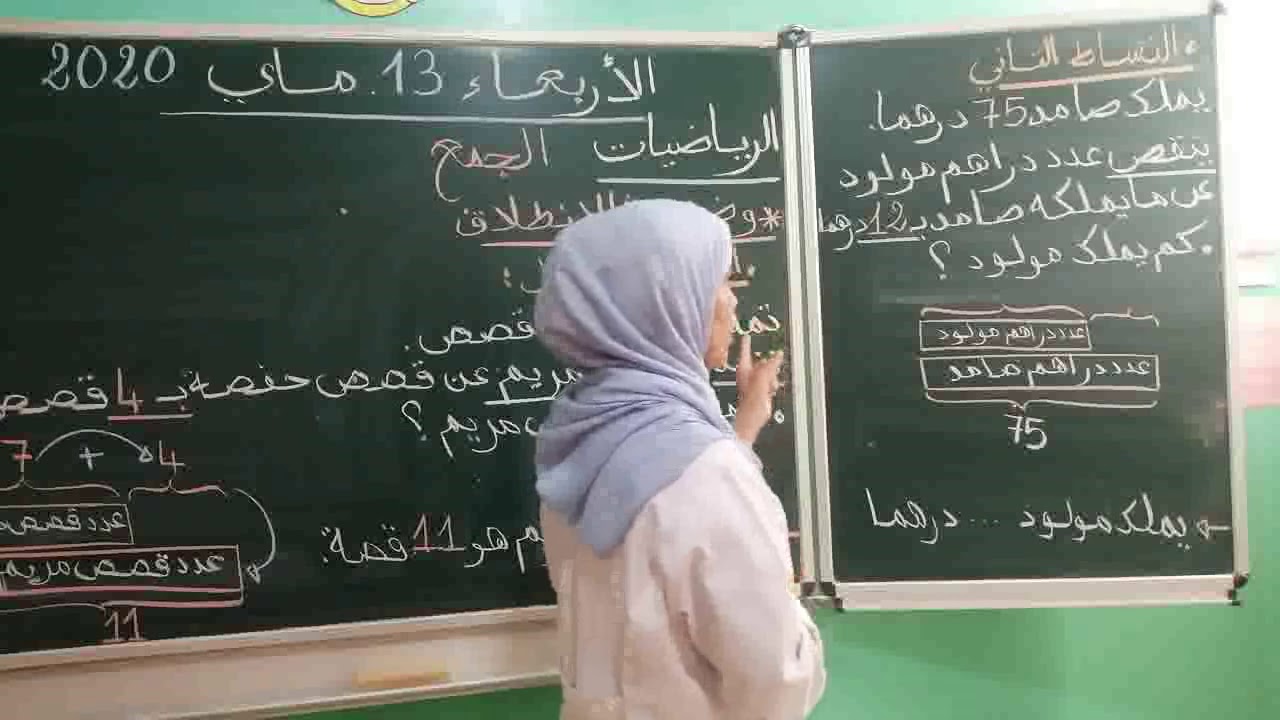 الأربعاء 13 ماي 2020
الرياضيات الجمع
* الانطلاق
قصص.
مريم عن قصص حفصة بـ 4 قصص
مريم ؟
7 + 4
عدد قصص
عدد قصص مريم
11
هو 11 قصة.
• النشاط الثاني
يملك صامد 75 درهما.
ينقص عدد دراهم مولود
عن ما يملكه صامد بـ 12 درهما
• كم يملك مولود ؟
عدد دراهم مولود
عدد دراهم صامد
75
يملك مولود ... درهما